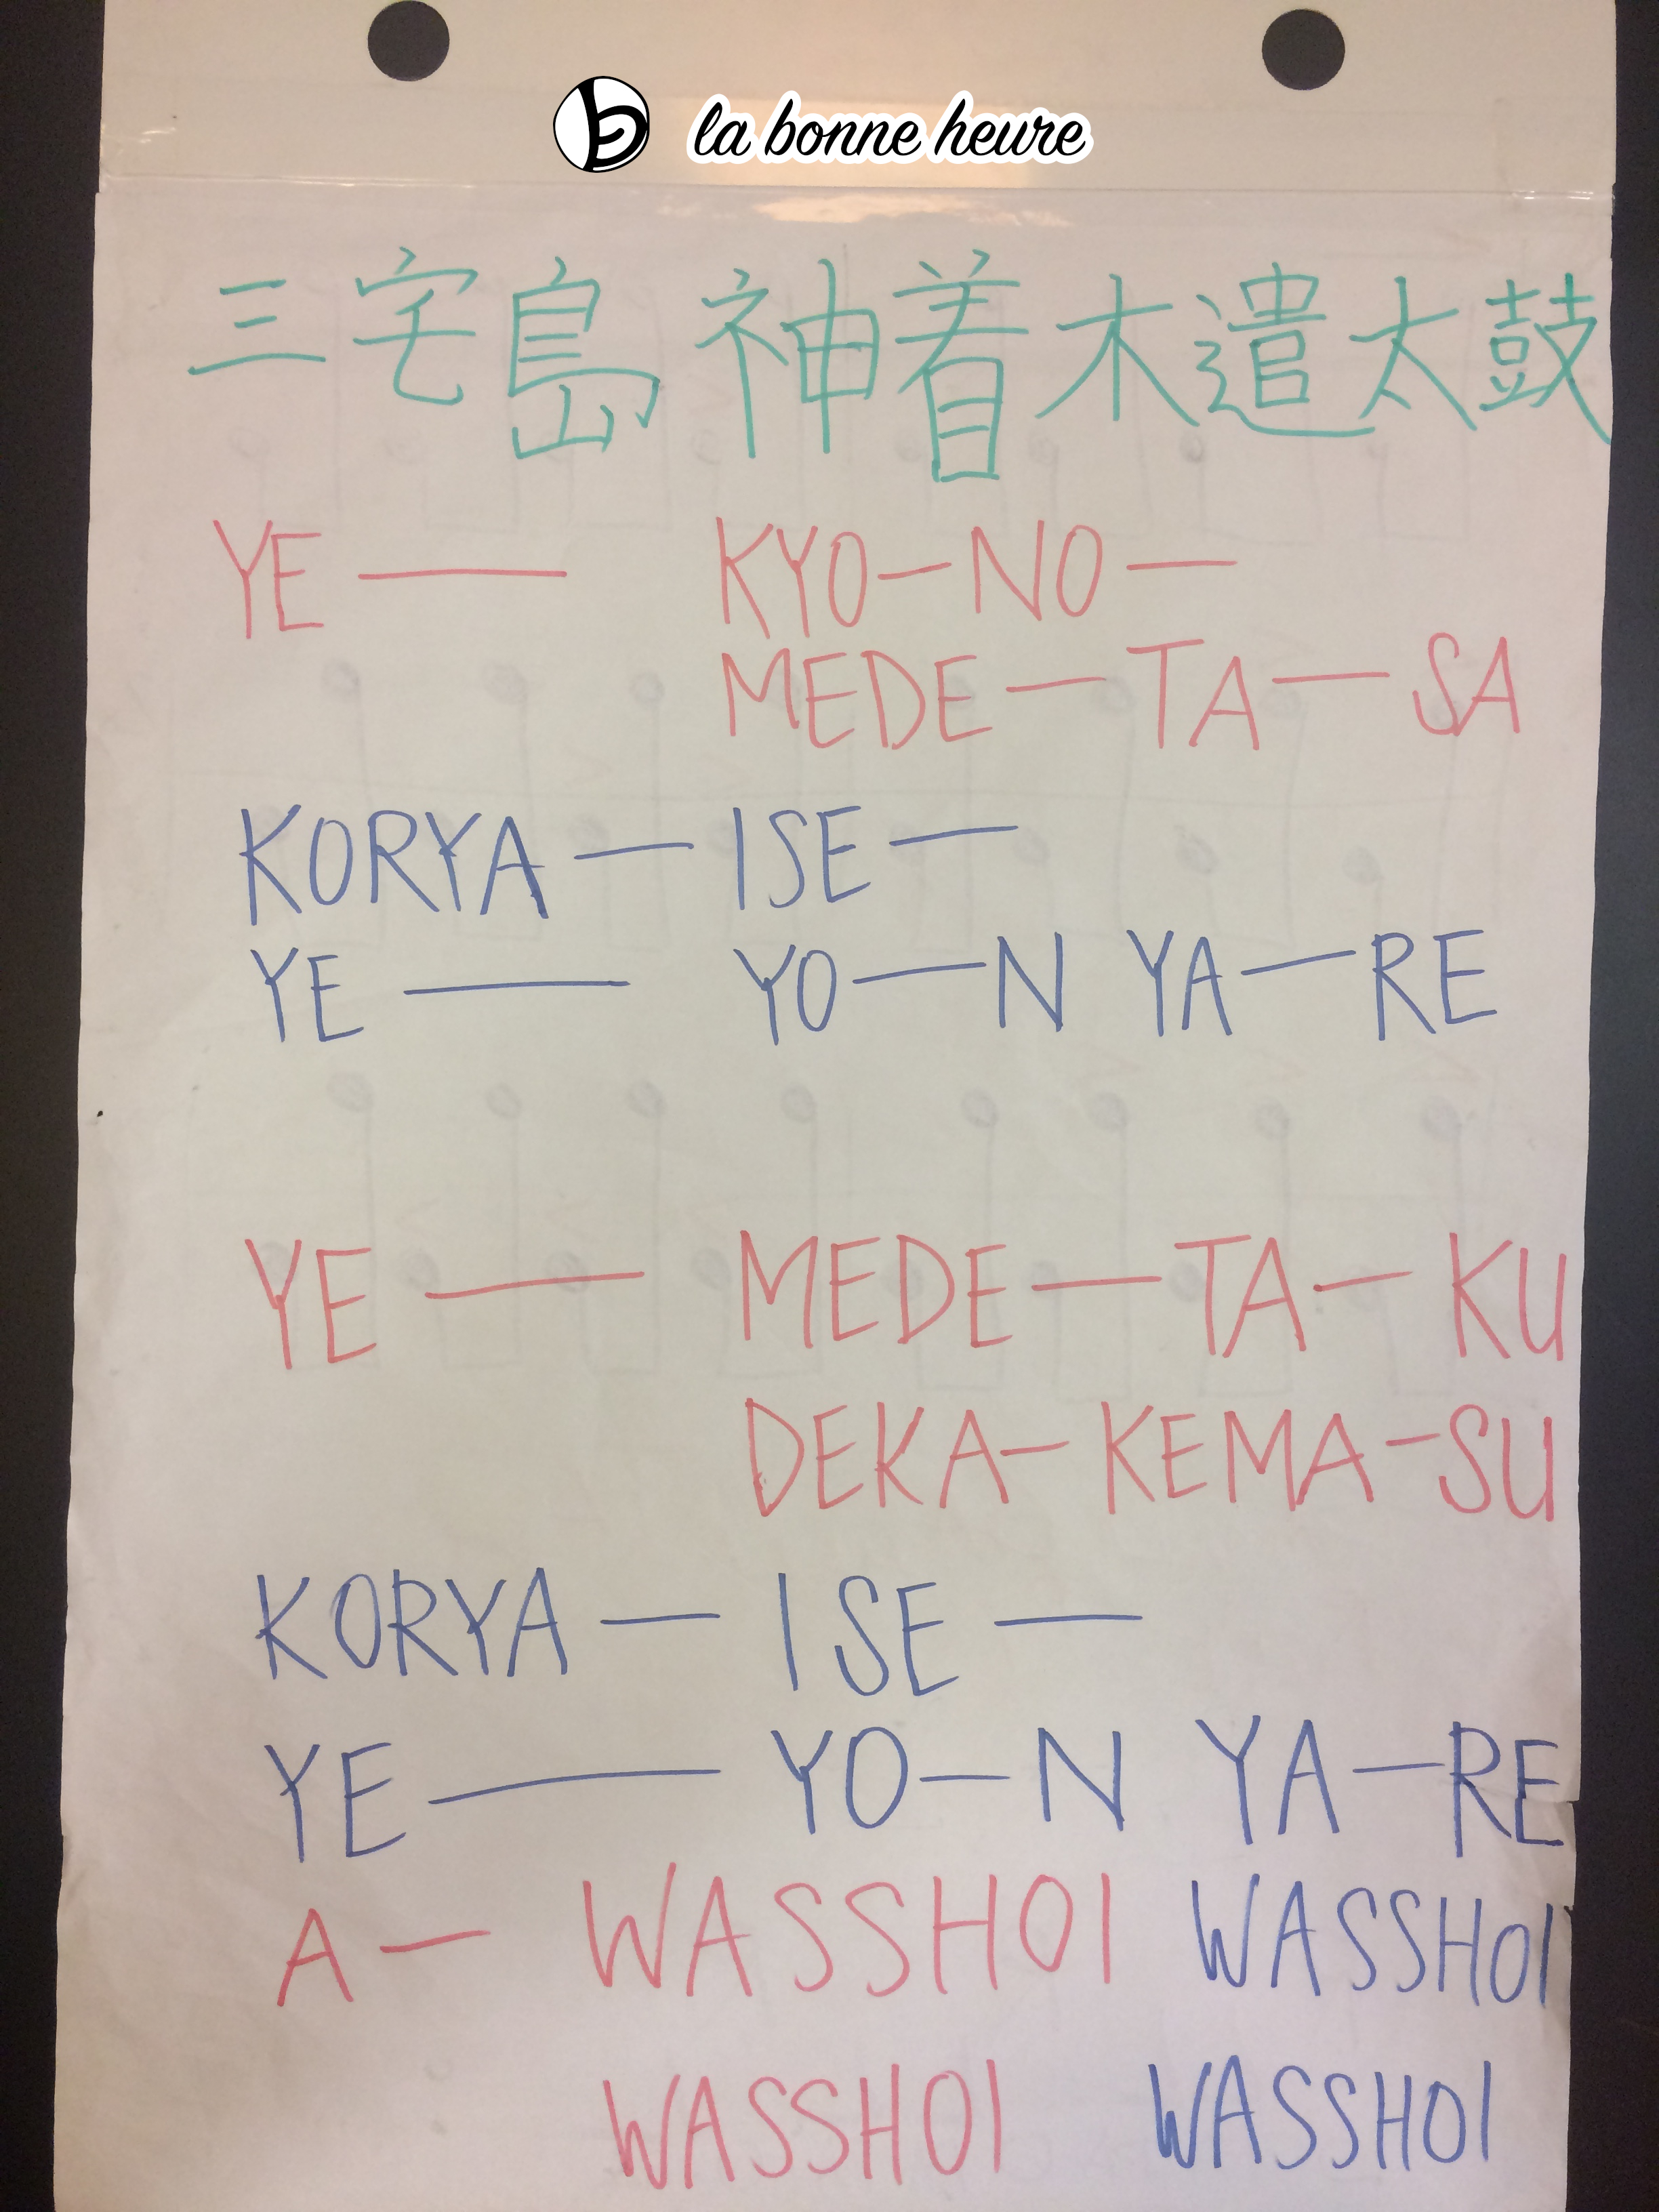 la bonne heure
三宅島 神着木遣太鼓
YE — KYO—NO—
MEDE—TA—SA
KORYA—ISE—
YE — YO—N YA—RE
YE — MEDE—TA—KU
DEKA—KEMA—SU
KORYA — ISE —
YE — YO—N YA—RE
A— WASSHOI WASSHOI
WASSHOI WASSHOI